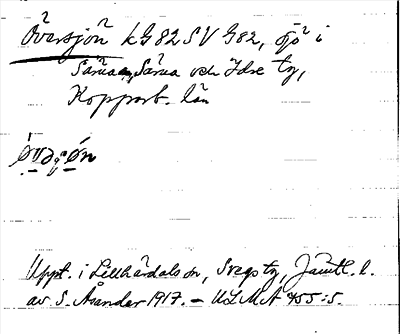 Översjön kG 82 SV G82, sjö i
Särna, Särna och Idre tg,
Kopparb. län
Uppt. i Lillhärdals sn, Svegs tg, Jämtl. l.
av S. Åsander 1917. – ULMA 455:5.